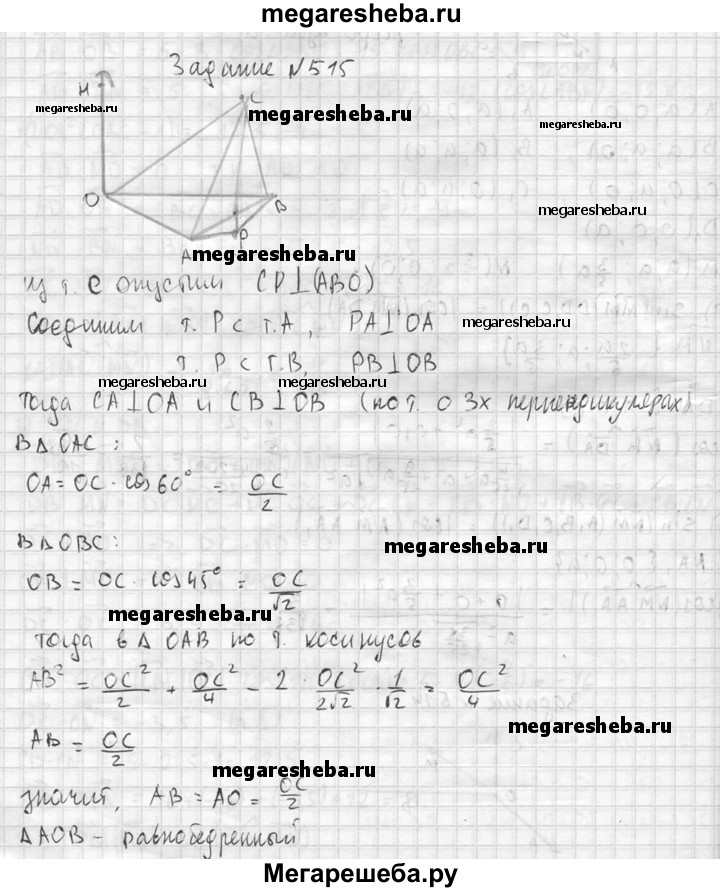 megaresheba.ru
Задание №515
H
C
megaresheba.ru
megaresheba.ru
megaresheba.ru
O
B
megaresheba.ru
A
P
megaresheba.ru
из т. C опустим CP⊥(ABO)
Соединим т. P с т. A, PA⊥OA
megaresheba.ru
т. P с т. B, PB⊥OB
megaresheba.ru
megaresheba.ru
Тогда CA⊥OA и CB⊥OB (по т. о 3х перпендикулярах)
В Δ OAC:
OA = OC · cos 60° = OC/2
В Δ OBC:
megaresheba.ru
OB = OC · cos 45° = OC/√2
megaresheba.ru
Тогда в Δ OAB по т. косинусов
AB² = OC²/2 + OC²/4 - 2 · OC²/2√2 · 1/√2 = OC²/4
megaresheba.ru
AB = OC/2
megaresheba.ru
значит, AB = AO = OC/2
ΔAOB - равнобедренный
Мегарешеба.ру